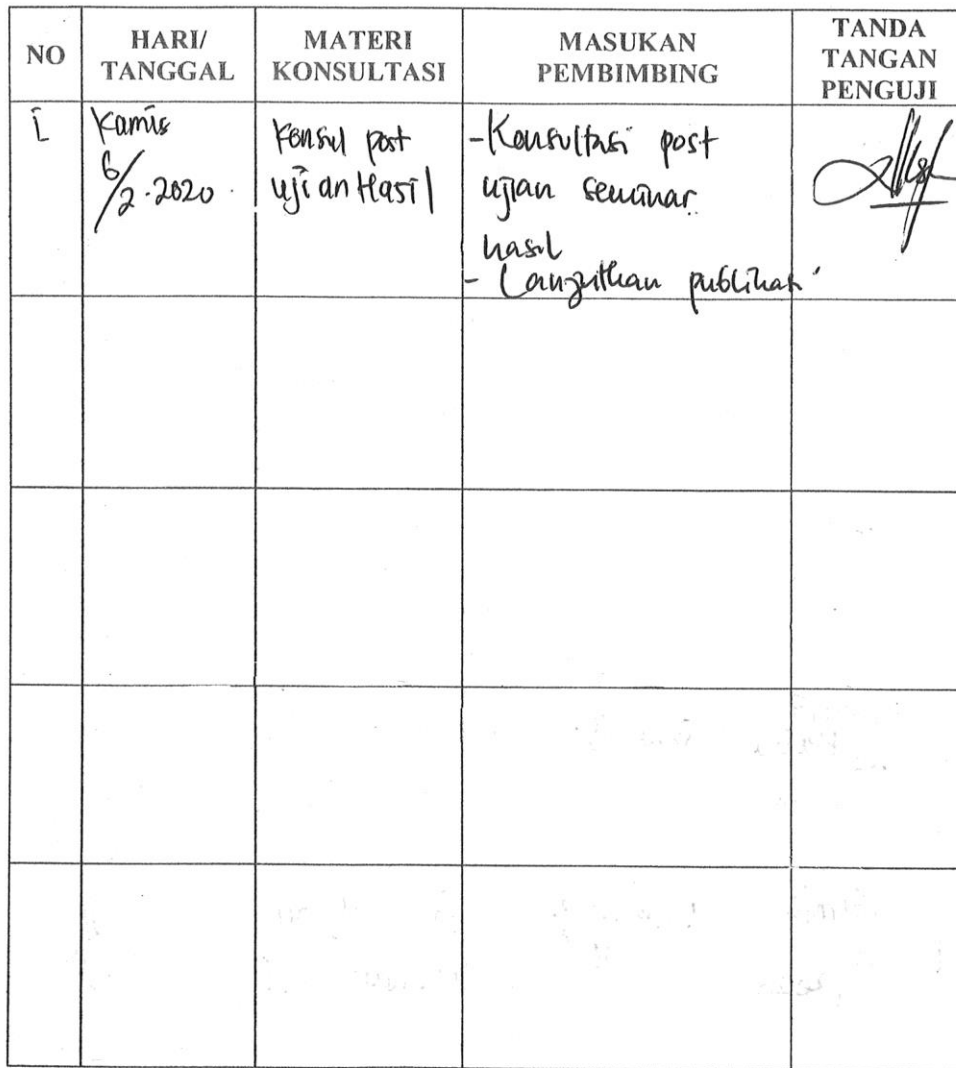 NO
HARI/
TANGGAL
MATERI
KONSULTASI
MASUKAN
PEMBIMBING
TANDA
TANGAN
PENGUJI
1
Kamis
6/2.2020.
Konsul post
ujian Hasil
- Konsultasi post
ujian seminar
hasil
- Lanjutkan publikasi